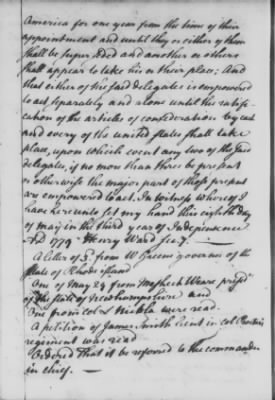 America for one year from the time of their
appointment and until they or either of them
shall be superseded and another or others
shall appear to take his or their place; And
that either of the said delegates is empowered
to act separately and alone until the ratifi-
cation of the articles of confederation by each
and every of the united states shall take
place, upon which event any two of the said
delegates, if no more than three be present
or otherwise the major part of those present
are empowered to act. In witness whereof I
have hereunto set my hand this eighth day
of may in the third year of Independence
AD 1779 Henry Ward Secy.
A letter of 8. from W Greene governor of the
state of Rhode island
One of May 29 from Meshech Weare presidt
of the state of Newhampshire and
One from col L Nicola were read.
A petition of James Smith lieut in col
regiment was read
Ordered That it be referred to the commander
in chief.